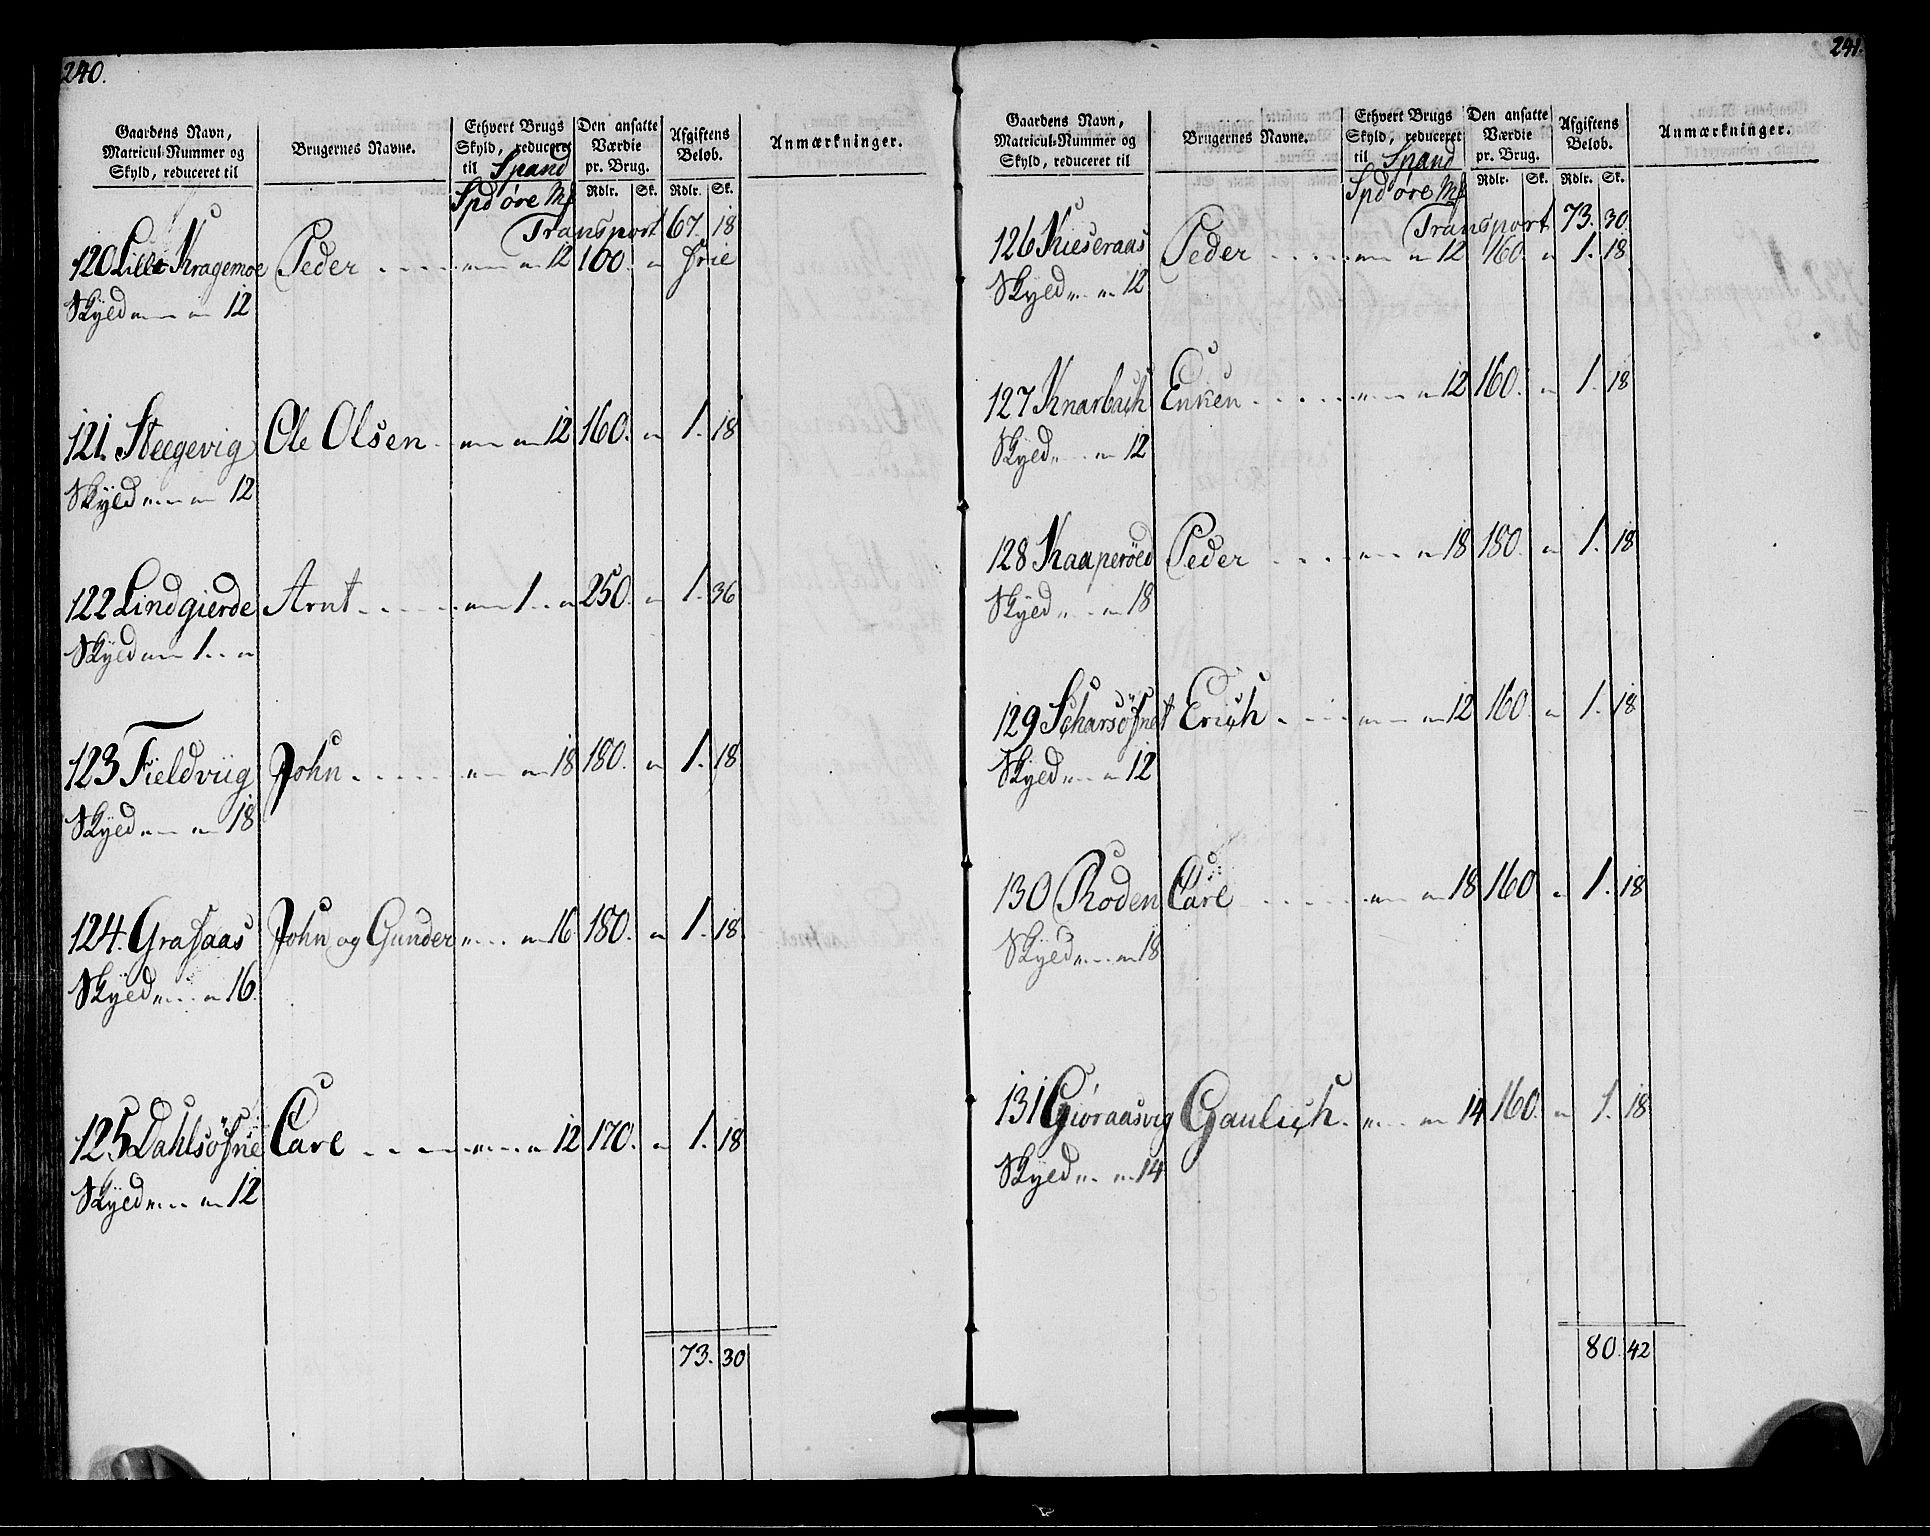 240.
Gaardens Navn, Matricul-Nummer og Skyld, reduceret til
Brugernes Navne.
Ethvert Brugs Skyld, reduceret til Spand
Spd øre Mk
Den ansatte Værdie pr. Brug.
Rdlr. Sk.
Afgiftens Beløb.
Rdlr. Sk.
Anmærkninger.
Transport 67. 18
120 Lille Kragemoe Peder 12 100. Frie
Skyld 12
121. Steegevig Ole Olsen 12 160. 1. 18
Skyld 12
122 Lindgierde Arnt 1. 250. 1. 36
Skyld 1.
123 Fieldviig John 18 180. 1. 18
Skyld 18
124. Grasaas John og Gunder 16 180. 1. 18.
Skyld 16.
125 Dahlsøfne Carl 12 170. 1. 18
Skyld 12
73. 30
241.
Gaardens Navn, Matricul-Nummer og Skyld, reduceret til
Brugernes Navne.
Ethvert Brugs Skyld, reduceret til Spand
Spd øre Mk
Den ansatte Værdie pr. Brug.
Rdlr. Sk.
Afgiftens Beløb.
Rdlr. Sk.
Anmærkninger.
Transport 73. 30.
126 Kieseraas Peder 12 160. 1. 18.
Skyld 12
127 Knarbach Enken 12 160. 1. 18
Skyld 12
128 Kaaperöed Peder 18 180. 1. 18
Skyld 18
129 Scharsöfnet Erich 12 160. 1. 18
Skyld 12
130 Roden Carl 18 160 1. 18
Skyld 18
131 Giøraasvig Gaulich. 14 160. 1. 18
Skyld 14
80. 42